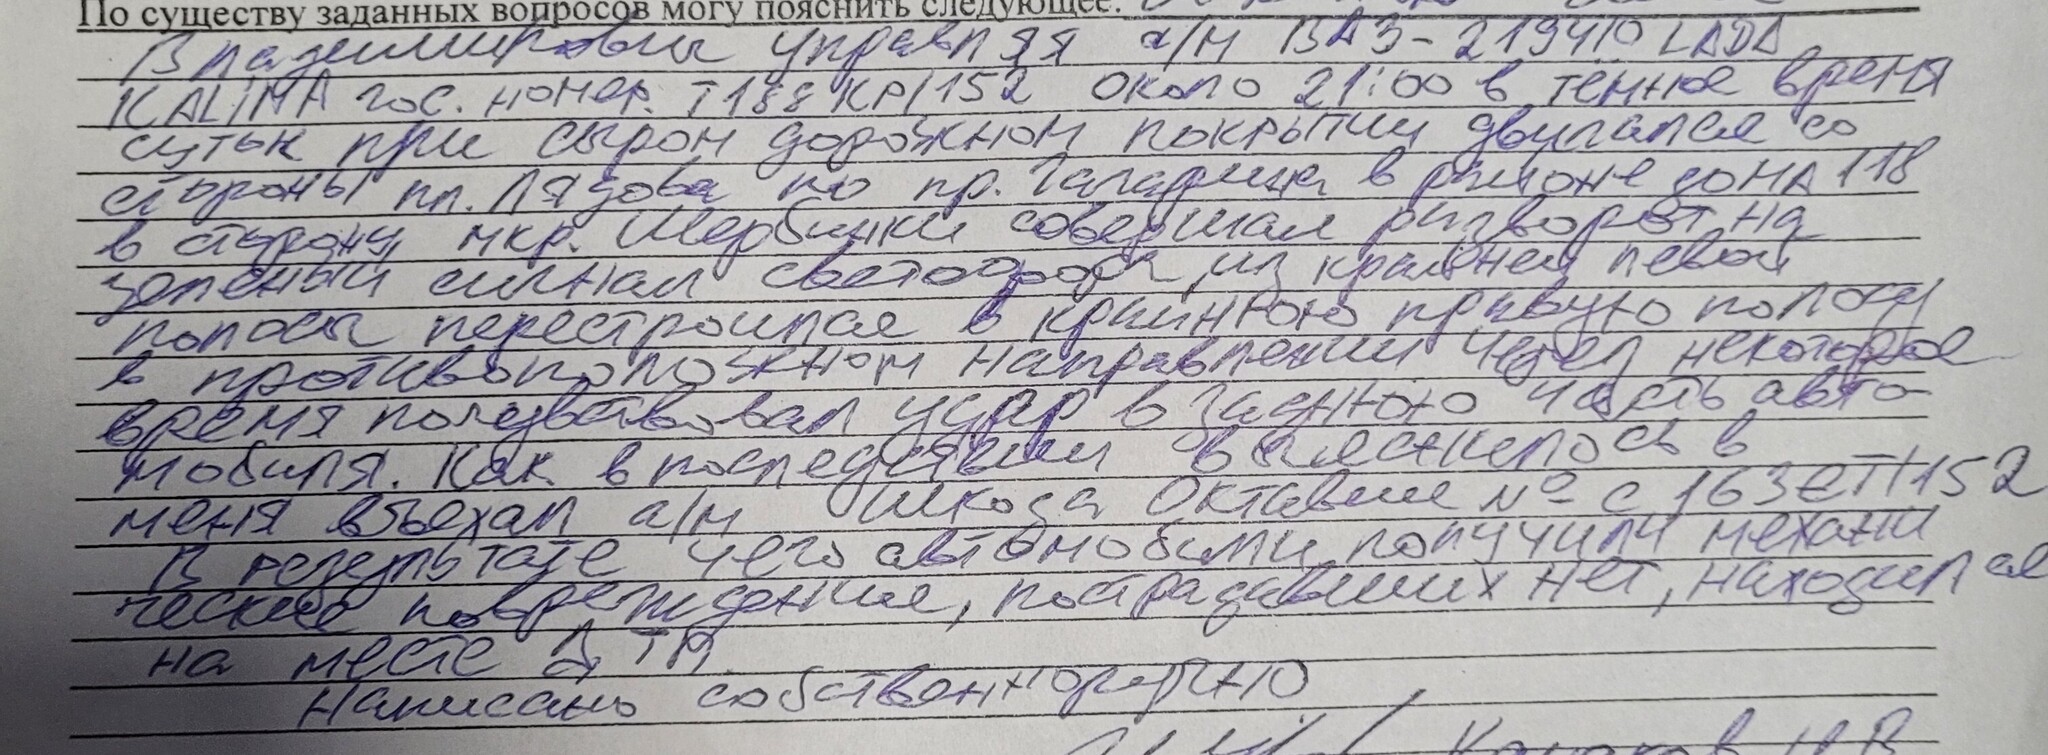 По существу заданных вопросов могу пояснить следующее:
Владимирович управляя а/м ВАЗ-219410 LADA
KALINA гос. номер. Т188КР/152 около 21:00 в тёмное время
суток при сыром дорожном покрытии двигался со
стороны пл. Лядова по пр. Гагарина в районе дома 118
в сторону мкр. Щербинки совершал разворот на
зеленый сигнал светофора, из крайней левой
полосы перестроился в крайнюю правую полосу
в противоположном направлении через некоторое
время почувствовал удар в заднюю часть авто-
мобиля. Как в последствии выяснилось в
меня въехал а/м Шкода Октавия № С163ЕТ/152
В результате чего автомобили получили механи
ческие повреждения, пострадавших нет, находился
на месте ДТП
Написано собственноручно